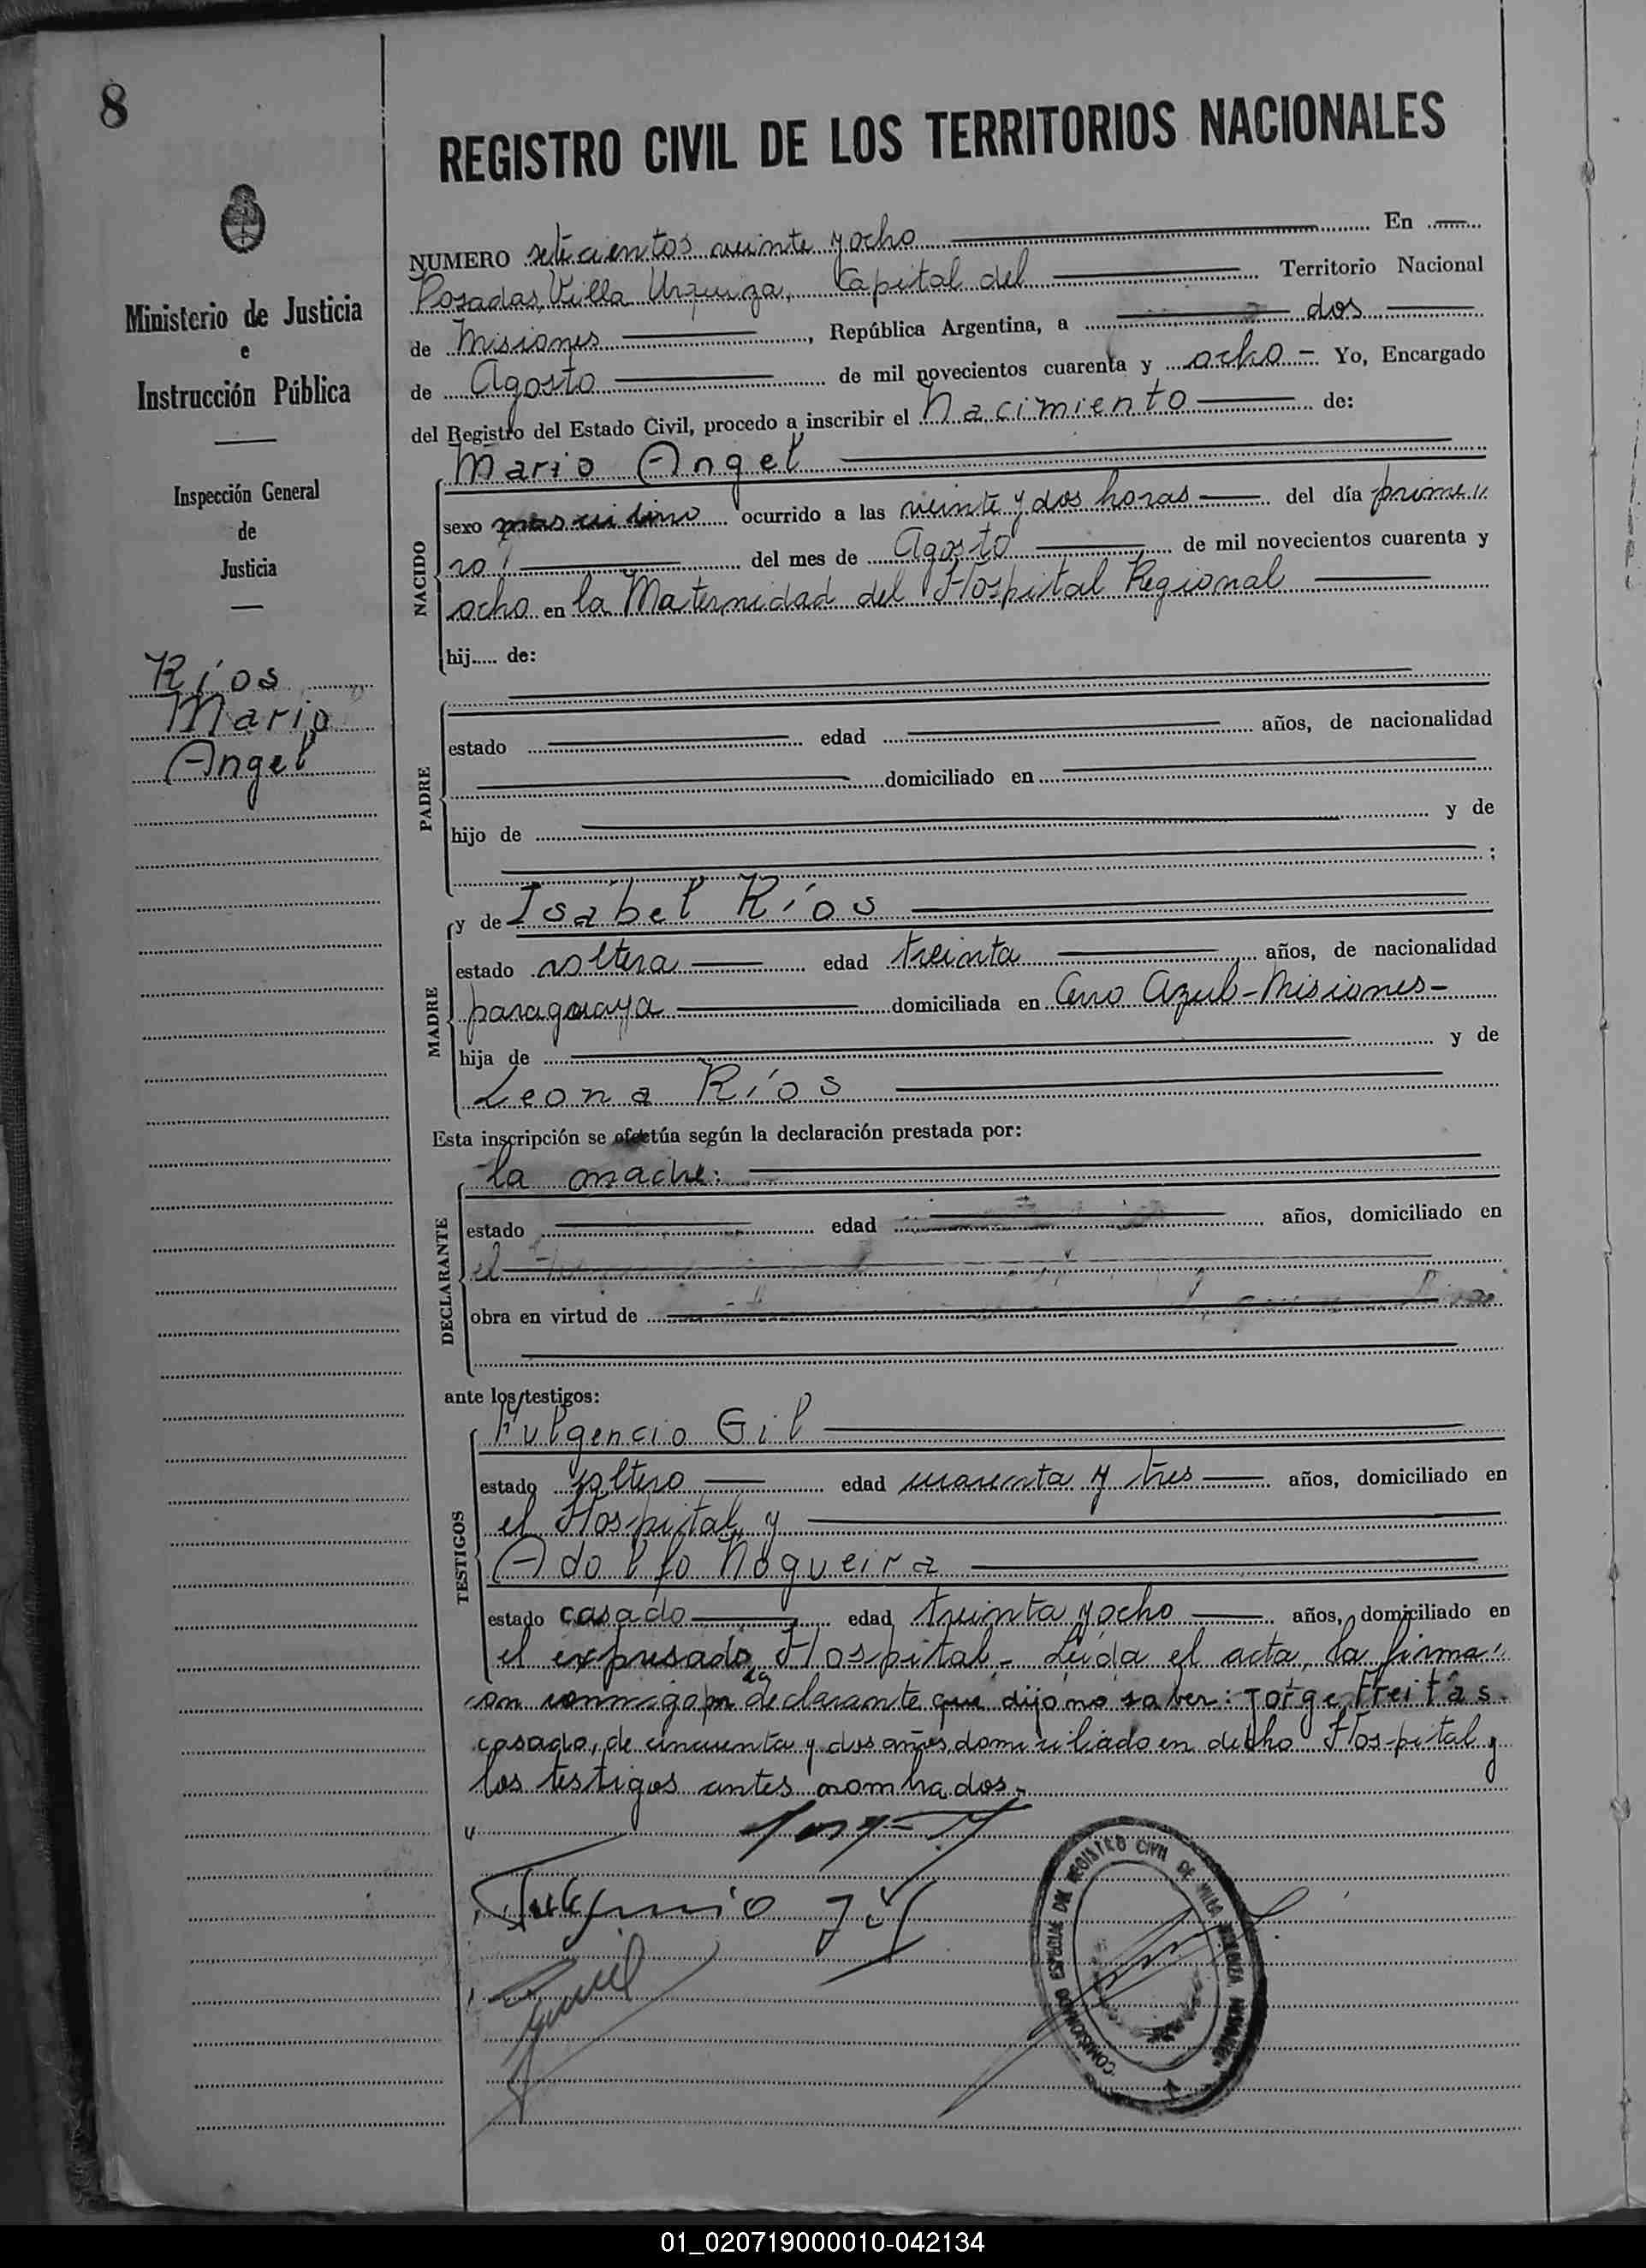 8
REGISTRO CIVIL DE LOS TERRITORIOS NACIONALES
Ministerio de Justicia
e
Instrucción Pública
Inspección General
de
Justicia
Ríos
Mario
Angel
NUMERO setecientos veinte y ocho En
Posadas, Villa Urquiza, Capital del Territorio Nacional
de Misiones, República Argentina, a dos
de Agosto de mil novecientos cuarenta y ocho - Yo, Encargado
del Registro del Estado Civil, procedo a inscribir el Nacimiento de:
NACIDO
Mario Angel
sexo masculino ocurrido a las veinte y dos horas del día prime"
ro del mes de Agosto de mil novecientos cuarenta y
ocho en la Maternidad del Hospital Regional
hij..... de:
PADRE
estado edad años, de nacionalidad
domiciliado en
hijo de y de
;
MADRE
y de Isabel Ríos
estado soltera edad treinta años, de nacionalidad
paraguaya domiciliada en Cerro Azul - Misiones -
hija de y de
Leona Ríos
Esta inscripción se efectúa según la declaración prestada por:
DECLARANTE
la madre:
estado edad años, domiciliado en
el
obra en virtud de
ante los testigos:
TESTIGOS
Fulgencio Gil
estado soltero edad cuarenta y tres años, domiciliado en
el Hospital y
Adolfo Nogueira
estado casado edad treinta y ocho años, domiciliado en
el expresado Hospital.- Leída el acta, la firma"
on conmigo por la declarante que dijo no saber: Jorge Freitas.
casado, de cincuenta y dos años, domiciliado en dicho Hospital y
los testigos antes nombrados.-
Fulgencio Gil
COMISIONADO ESPECIAL DEL REGISTRO CIVIL DE VILLA URQUIZA MISIONES
01_020719000010-042134